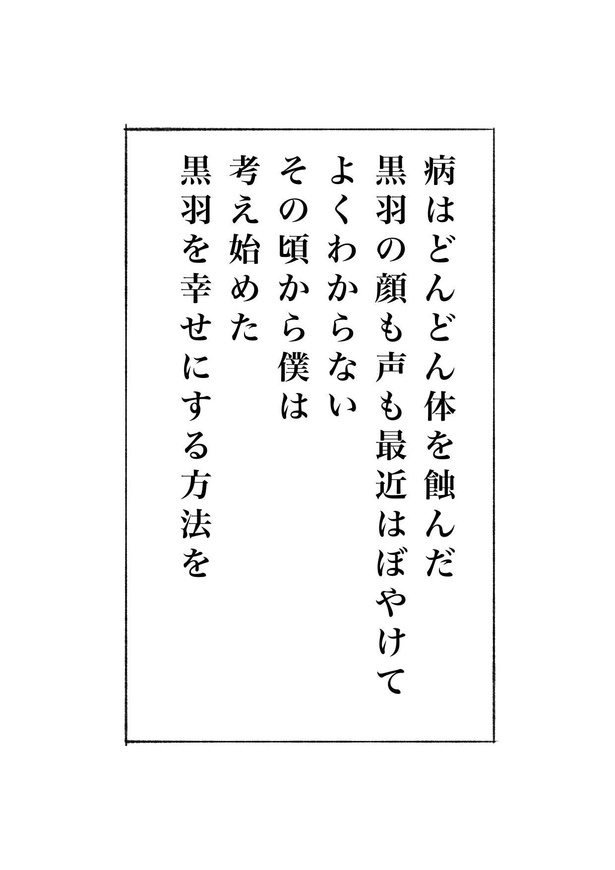 病はどんどん体を蝕んだ
黒羽の顔も声も最近はぼやけて
よくわからない
その頃から僕は
考え始めた
黒羽を幸せにする方法を